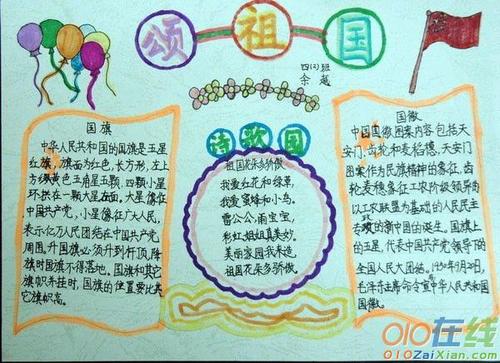 颂祖国
四(2)班
余越
国旗
中华人民共和国的国旗是五星
红旗，旗面为红色，长方形，左上
方缀黄色五角星五颗，四颗小星
环拱在一颗大星左面，大星象征
中国共产党，小星象征广大人民，
表示亿万人民团结在中国共产党
周围。升国旗必须升到杆顶，降
旗时国旗不得落地。国旗和其它
旗帜并挂时，国旗的位置要比其
它旗帜高。
诗歌园
祖国花朵多骄傲
我爱红花和绿草，
我爱蜜蜂和小鸟，
雷公公，雨宝宝，
彩虹姐姐真美妙。
美丽家园我来造
祖国花朵多骄傲。
国徽
中国国徽图案内容包括天
安门、齿轮和麦稻穗，天安门
图案作为民族精神的象征，齿
轮麦穗象征工农阶级领导的
以工农联盟为基础的人民民主
专政的新中国的诞生。国旗上
的五星，代表中国共产党领导下的
全国人民大团结。1950年9月20日，
毛泽东主席命令宣中华人民共和国
国徽。
010在线
010ZaiXian.com